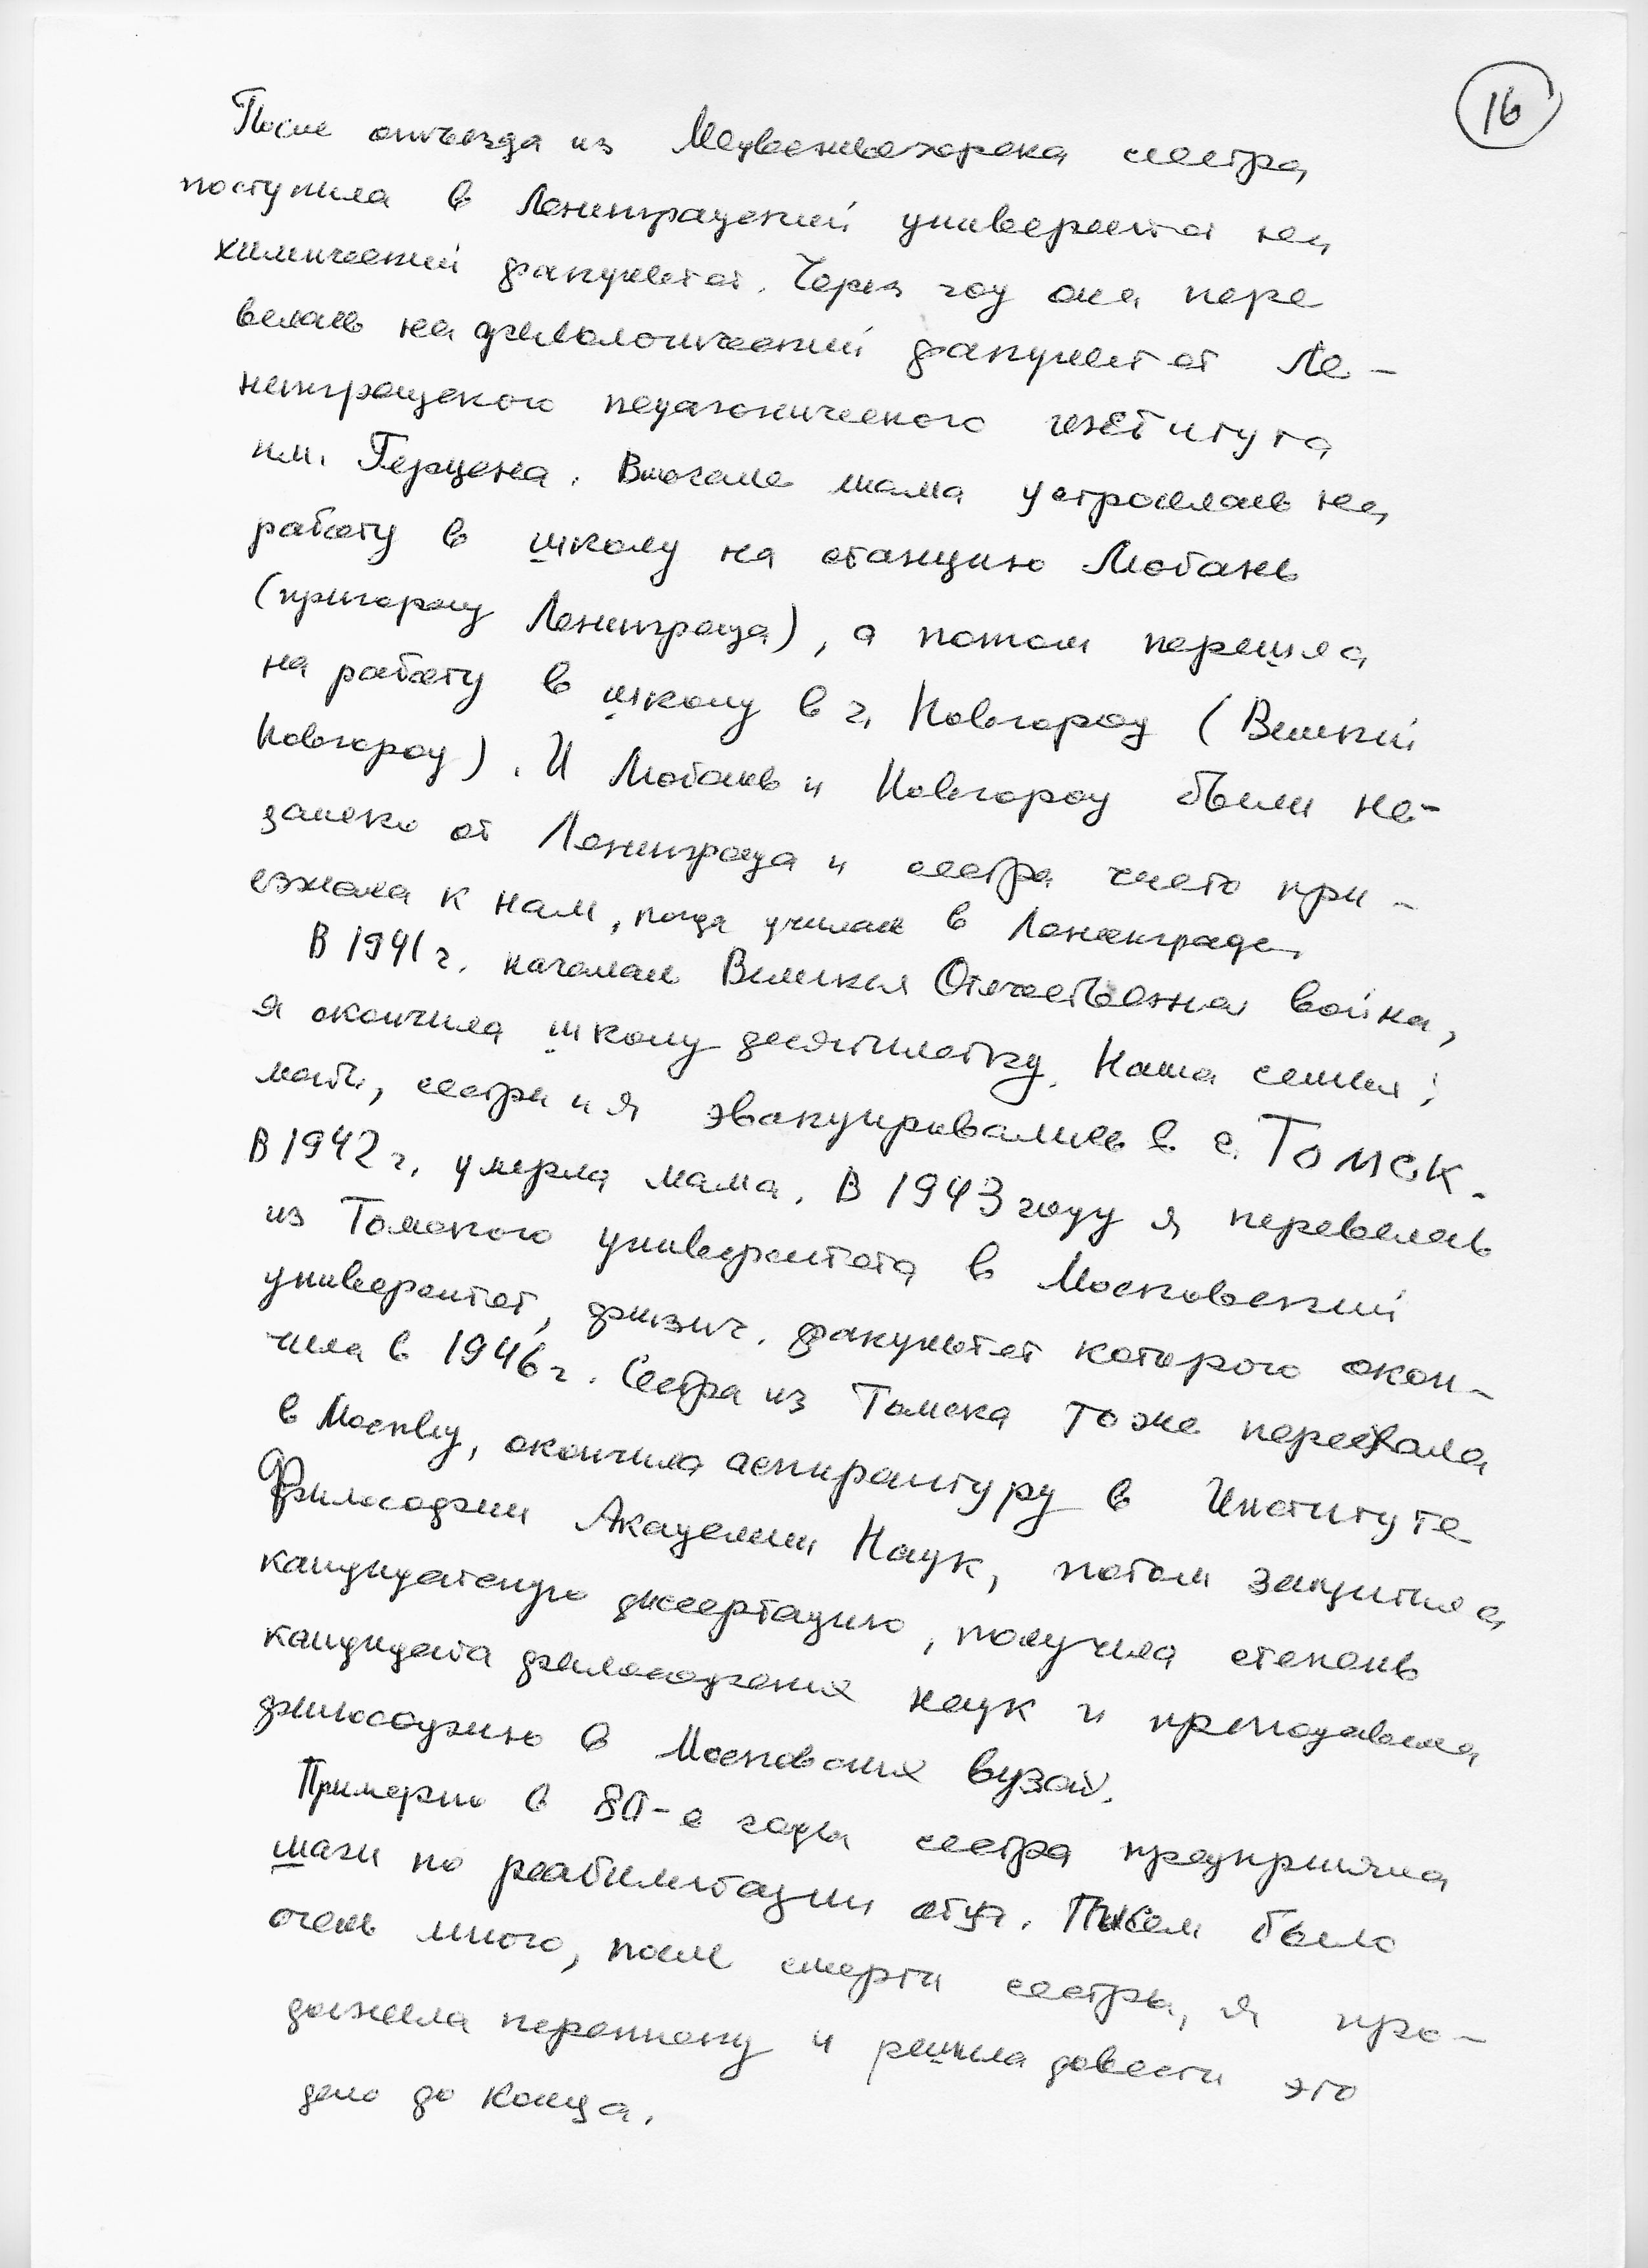 16
После отъезда из Медвежьегорска сестра
поступила в Ленинградский университет на
химический факультет. Через год она пере
велась на филологический факультет Ле-
нинградского педагогического института
им. Герцена. Вначале мама устроилась на
работу в школу на станцию Любань
(пригород Ленинграда), а потом перешла
на работу в школу в г. Новгород (Великий
Новгород). И Любань и Новгород были не-
далеко от Ленинграда и сестра часто при-
езжала к нам, когда училась в Ленинграде.
В 1941 г. началась Великая Отечественная война,
я окончила школу десятилетку. Наша семья:
мать, сестра и я эвакуировались в г. Томск.
В 1942 г. умерла мама. В 1943 году я перевелась
из Томского университета в Московский
университет, физич. факультет которого окон-
чила в 1946 г. Сестра из Томска тоже переехала
в Москву, окончила аспирантуру в Институте
Философии Академии Наук, потом защитила
кандидатскую диссертацию, получила степень
кандидата философских наук и преподавала
философию в Московских вузах.
Примерно в 80-е годы сестра предприняла
шаги по реабилитации отца. Писем было
очень много, после смерти сестры, я про-
должила переписку и решила довести это
дело до конца.